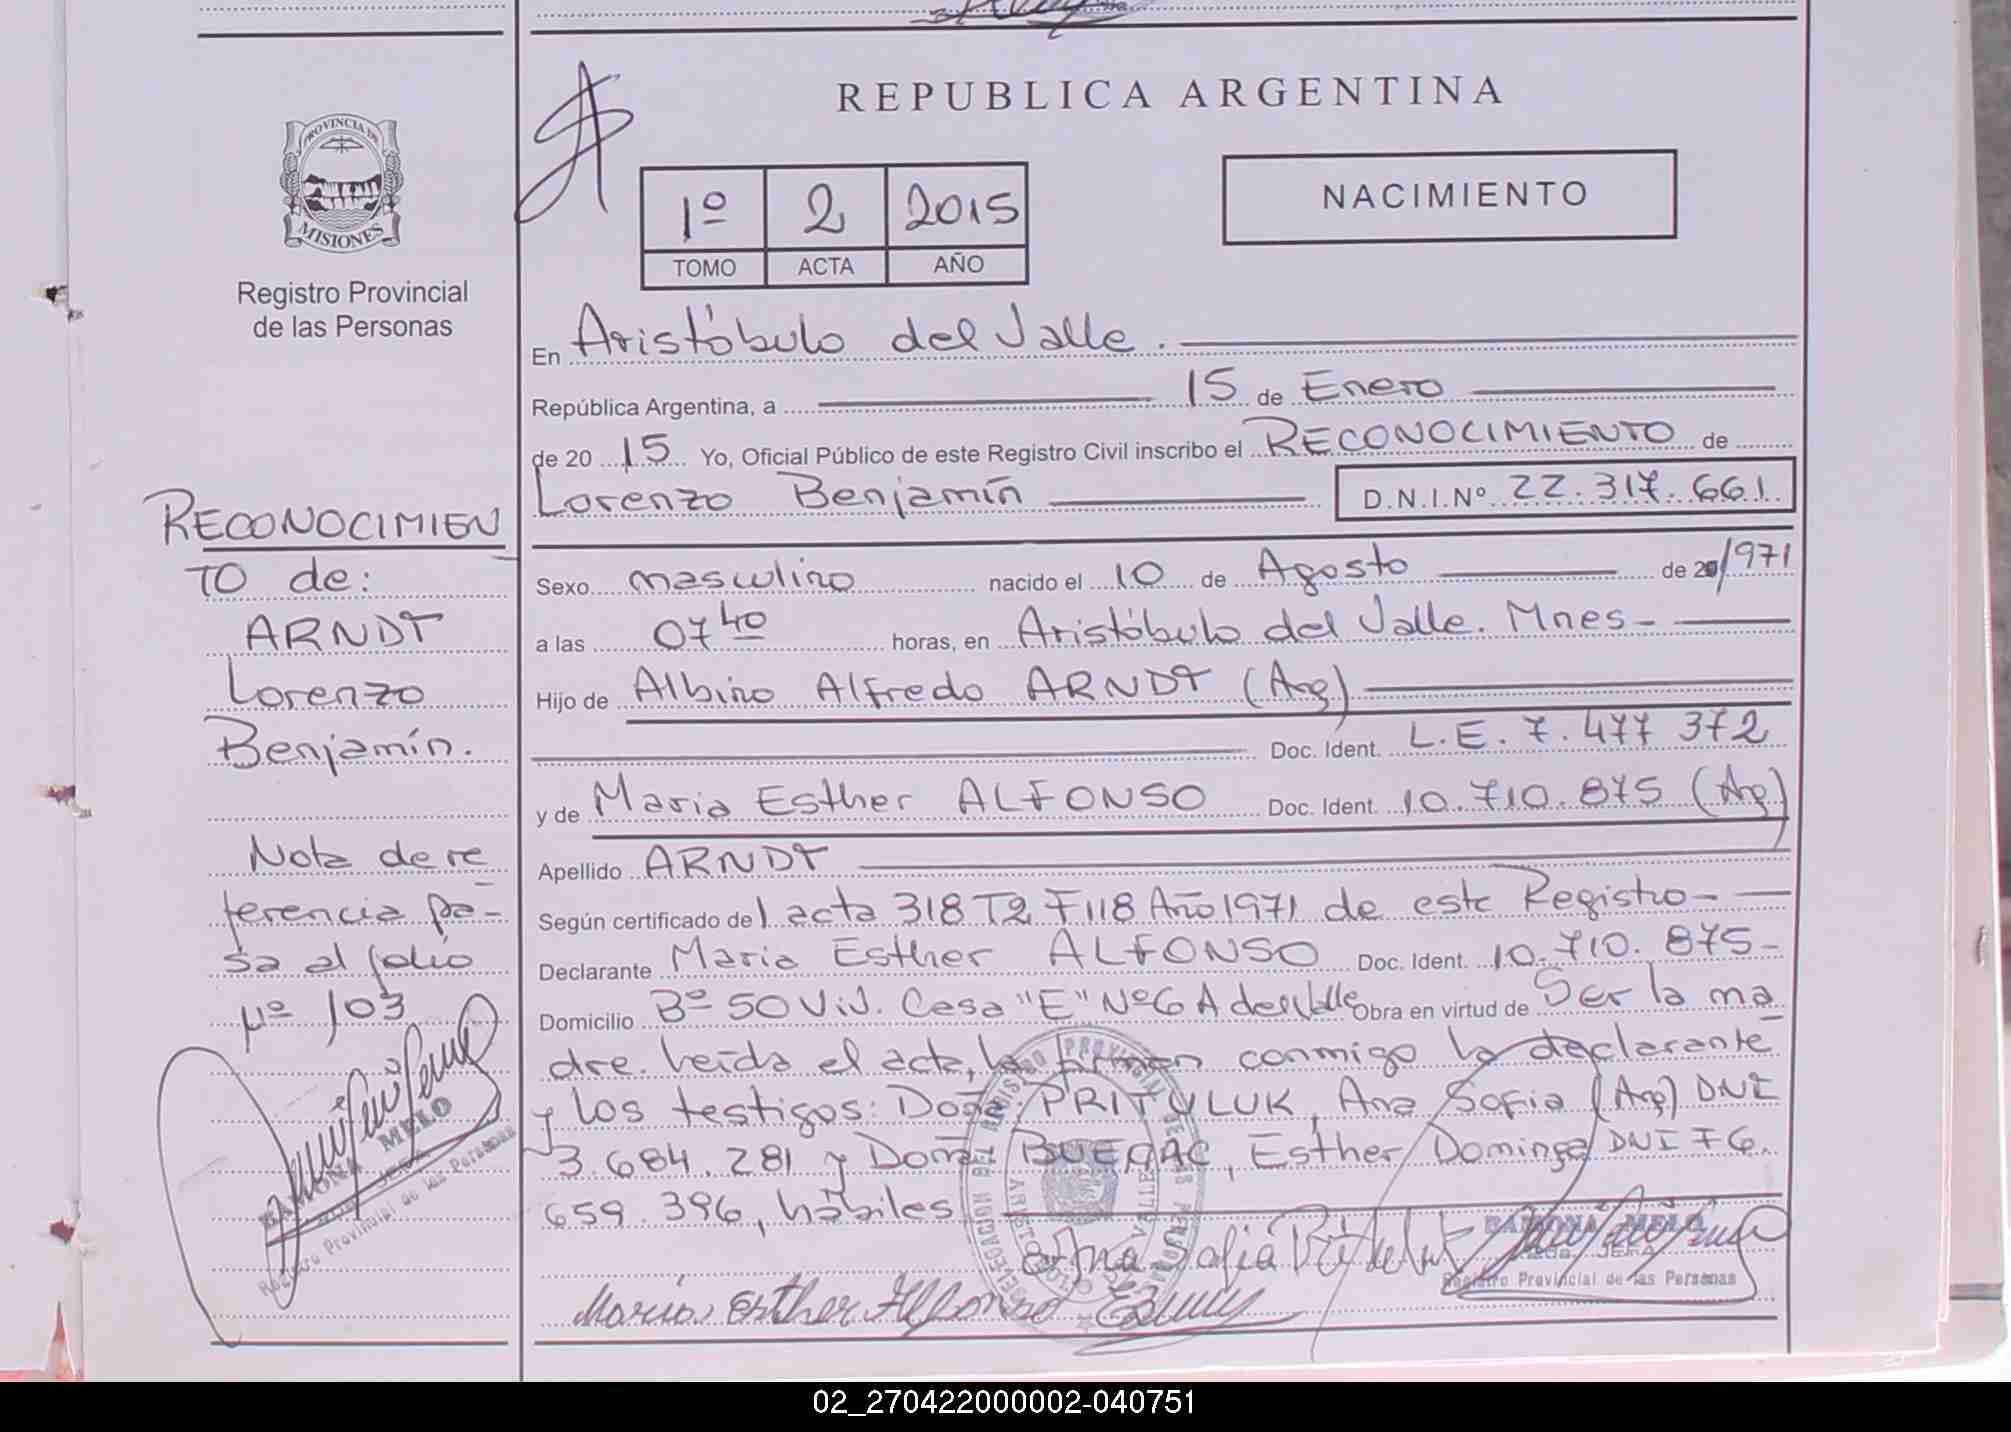 REPUBLICA ARGENTINA
PROVINCIA DE
MISIONES
Registro Provincial
de las Personas
1º 2 2015
TOMO ACTA AÑO
NACIMIENTO
En Aristóbulo del Valle.
República Argentina, a 15 de Enero
de 20 15 Yo, Oficial Público de este Registro Civil inscribo el RECONOCIMIENTO de
Lorenzo Benjamín D.N.I.Nº 22.317.661
Sexo masculino nacido el 10 de Agosto de 20/971
a las 07 40 horas, en Aristóbulo del Valle. Mnes-
Hijo de Albino Alfredo ARNDT (Arg)
Doc. Ident. L.E. 7.477 372
y de Maria Esther ALFONSO Doc. Ident. 10.710.875 (Arg)
Apellido ARNDT
Según certificado de l acta 318 T2 F118 Año 1971 de este Registro-
Declarante Maria Esther ALFONSO Doc. Ident. 10.710.875-
Domicilio Bº 50 Viv. Casa "E" Nº6 A del Valle Obra en virtud de Ser la ma
dre. Leída el acta, la firman conmigo la declarante
y los testigos: Doña: PRITULUK, Ana Sofia (Arg) DNI
3.684.281 y Doña Esther Dominga DNI F6.
659.396, hábiles
Ana Sofia Prituluk
RAMONA MELO
JEFA
Registro Provincial de las Personas
Maria Esther Alfonso
RECONOCIMIEN
TO de:
ARNDT
Lorenzo
Benjamín.
Nota de re
ferencia pa-
sa al folio
Nº 103
RAMONA MELO
JEFA
Registro Provincial de las Personas
02_270422000002-040751